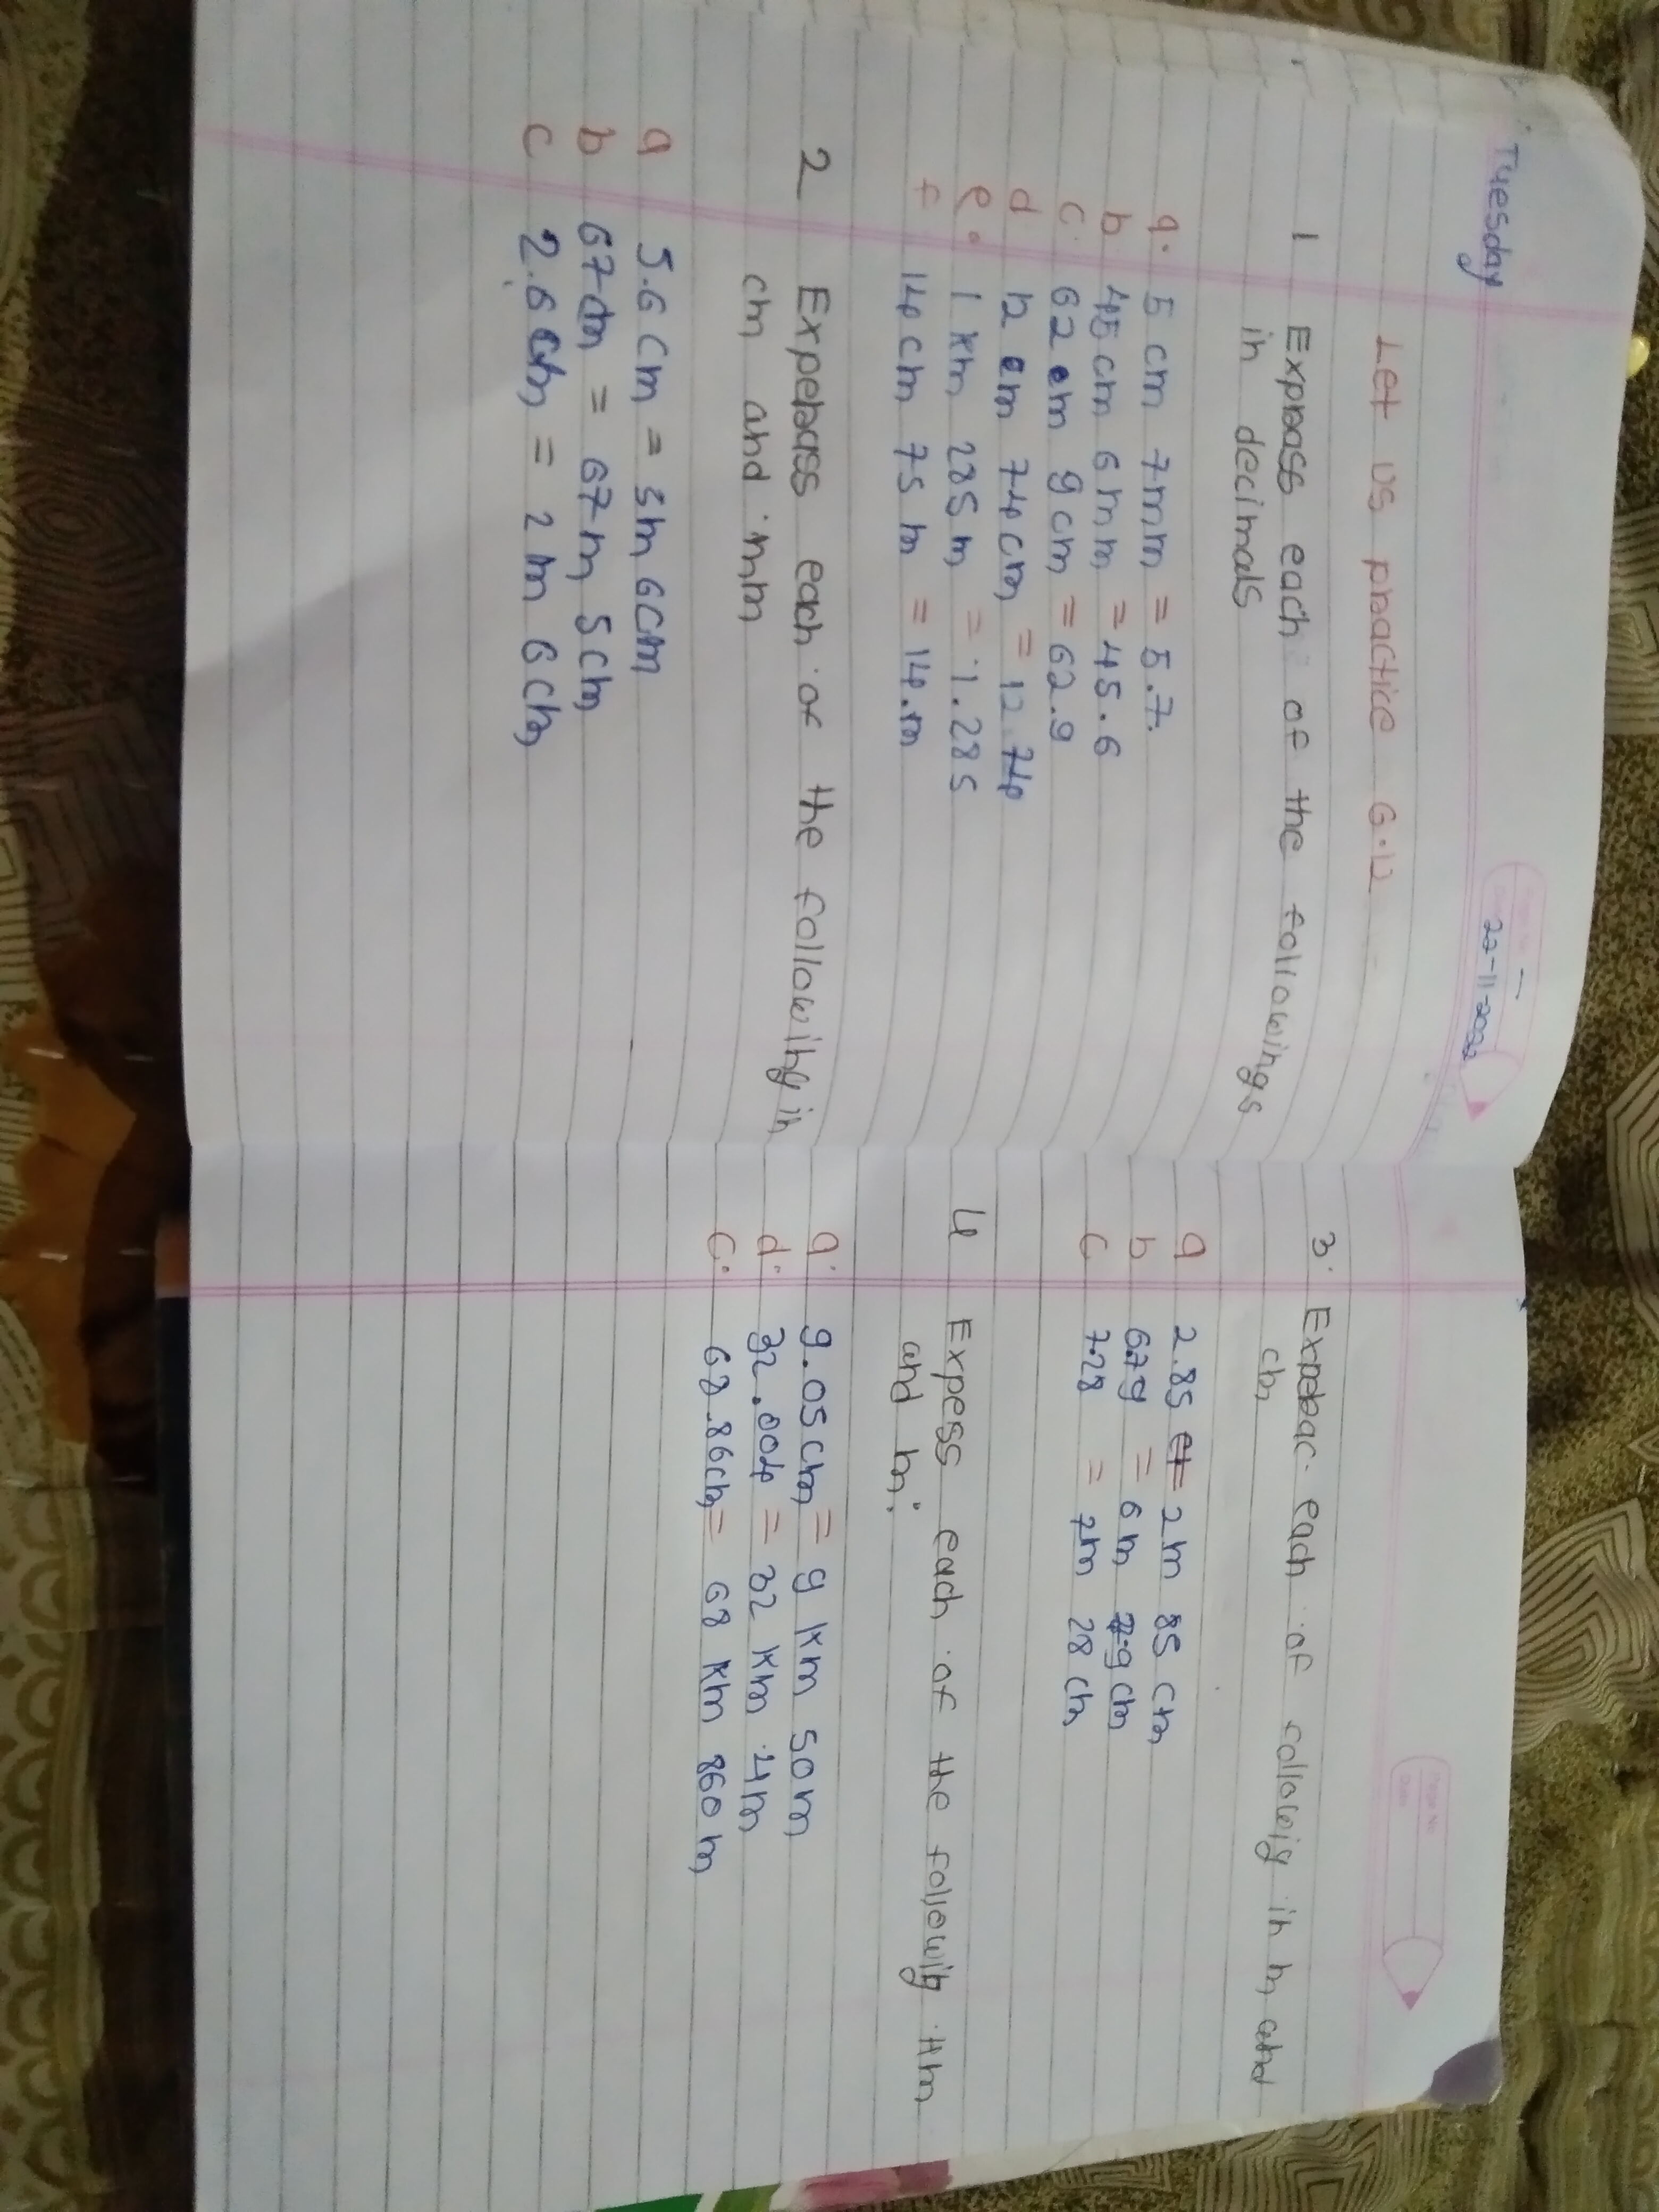 Tuesday
22-11-2022
Let us practice 6.12
1 Exprass each of the followings
in decimals
a. 5 cm 7mm = 5.7.
b 45cm 6mm = 45.6
c. 62 cm 9cm = 62.9
d 12 cm 74cm = 12.74
e. 1 km 285m = 1.285
f 14cm 75m = 14.m
2 Experass each of the following in
cm and mm
a 5.6cm = 5m 6cm
b 67cm = 67m 5cm
c 2.6cm = 2m 6cm
Page No.
Date
3. each of collowig in m and
cm
a 2.85 = 2m 85 cm
b 6.79 = 6m 79cm
c 7.28 = 7m 28cm
4 Expess each of the followig Hm
and m.
a. 9.05cm = 9 km 50m
d. 32.004 = 32 km 4m
c. 68.86cm = 68 km 860m